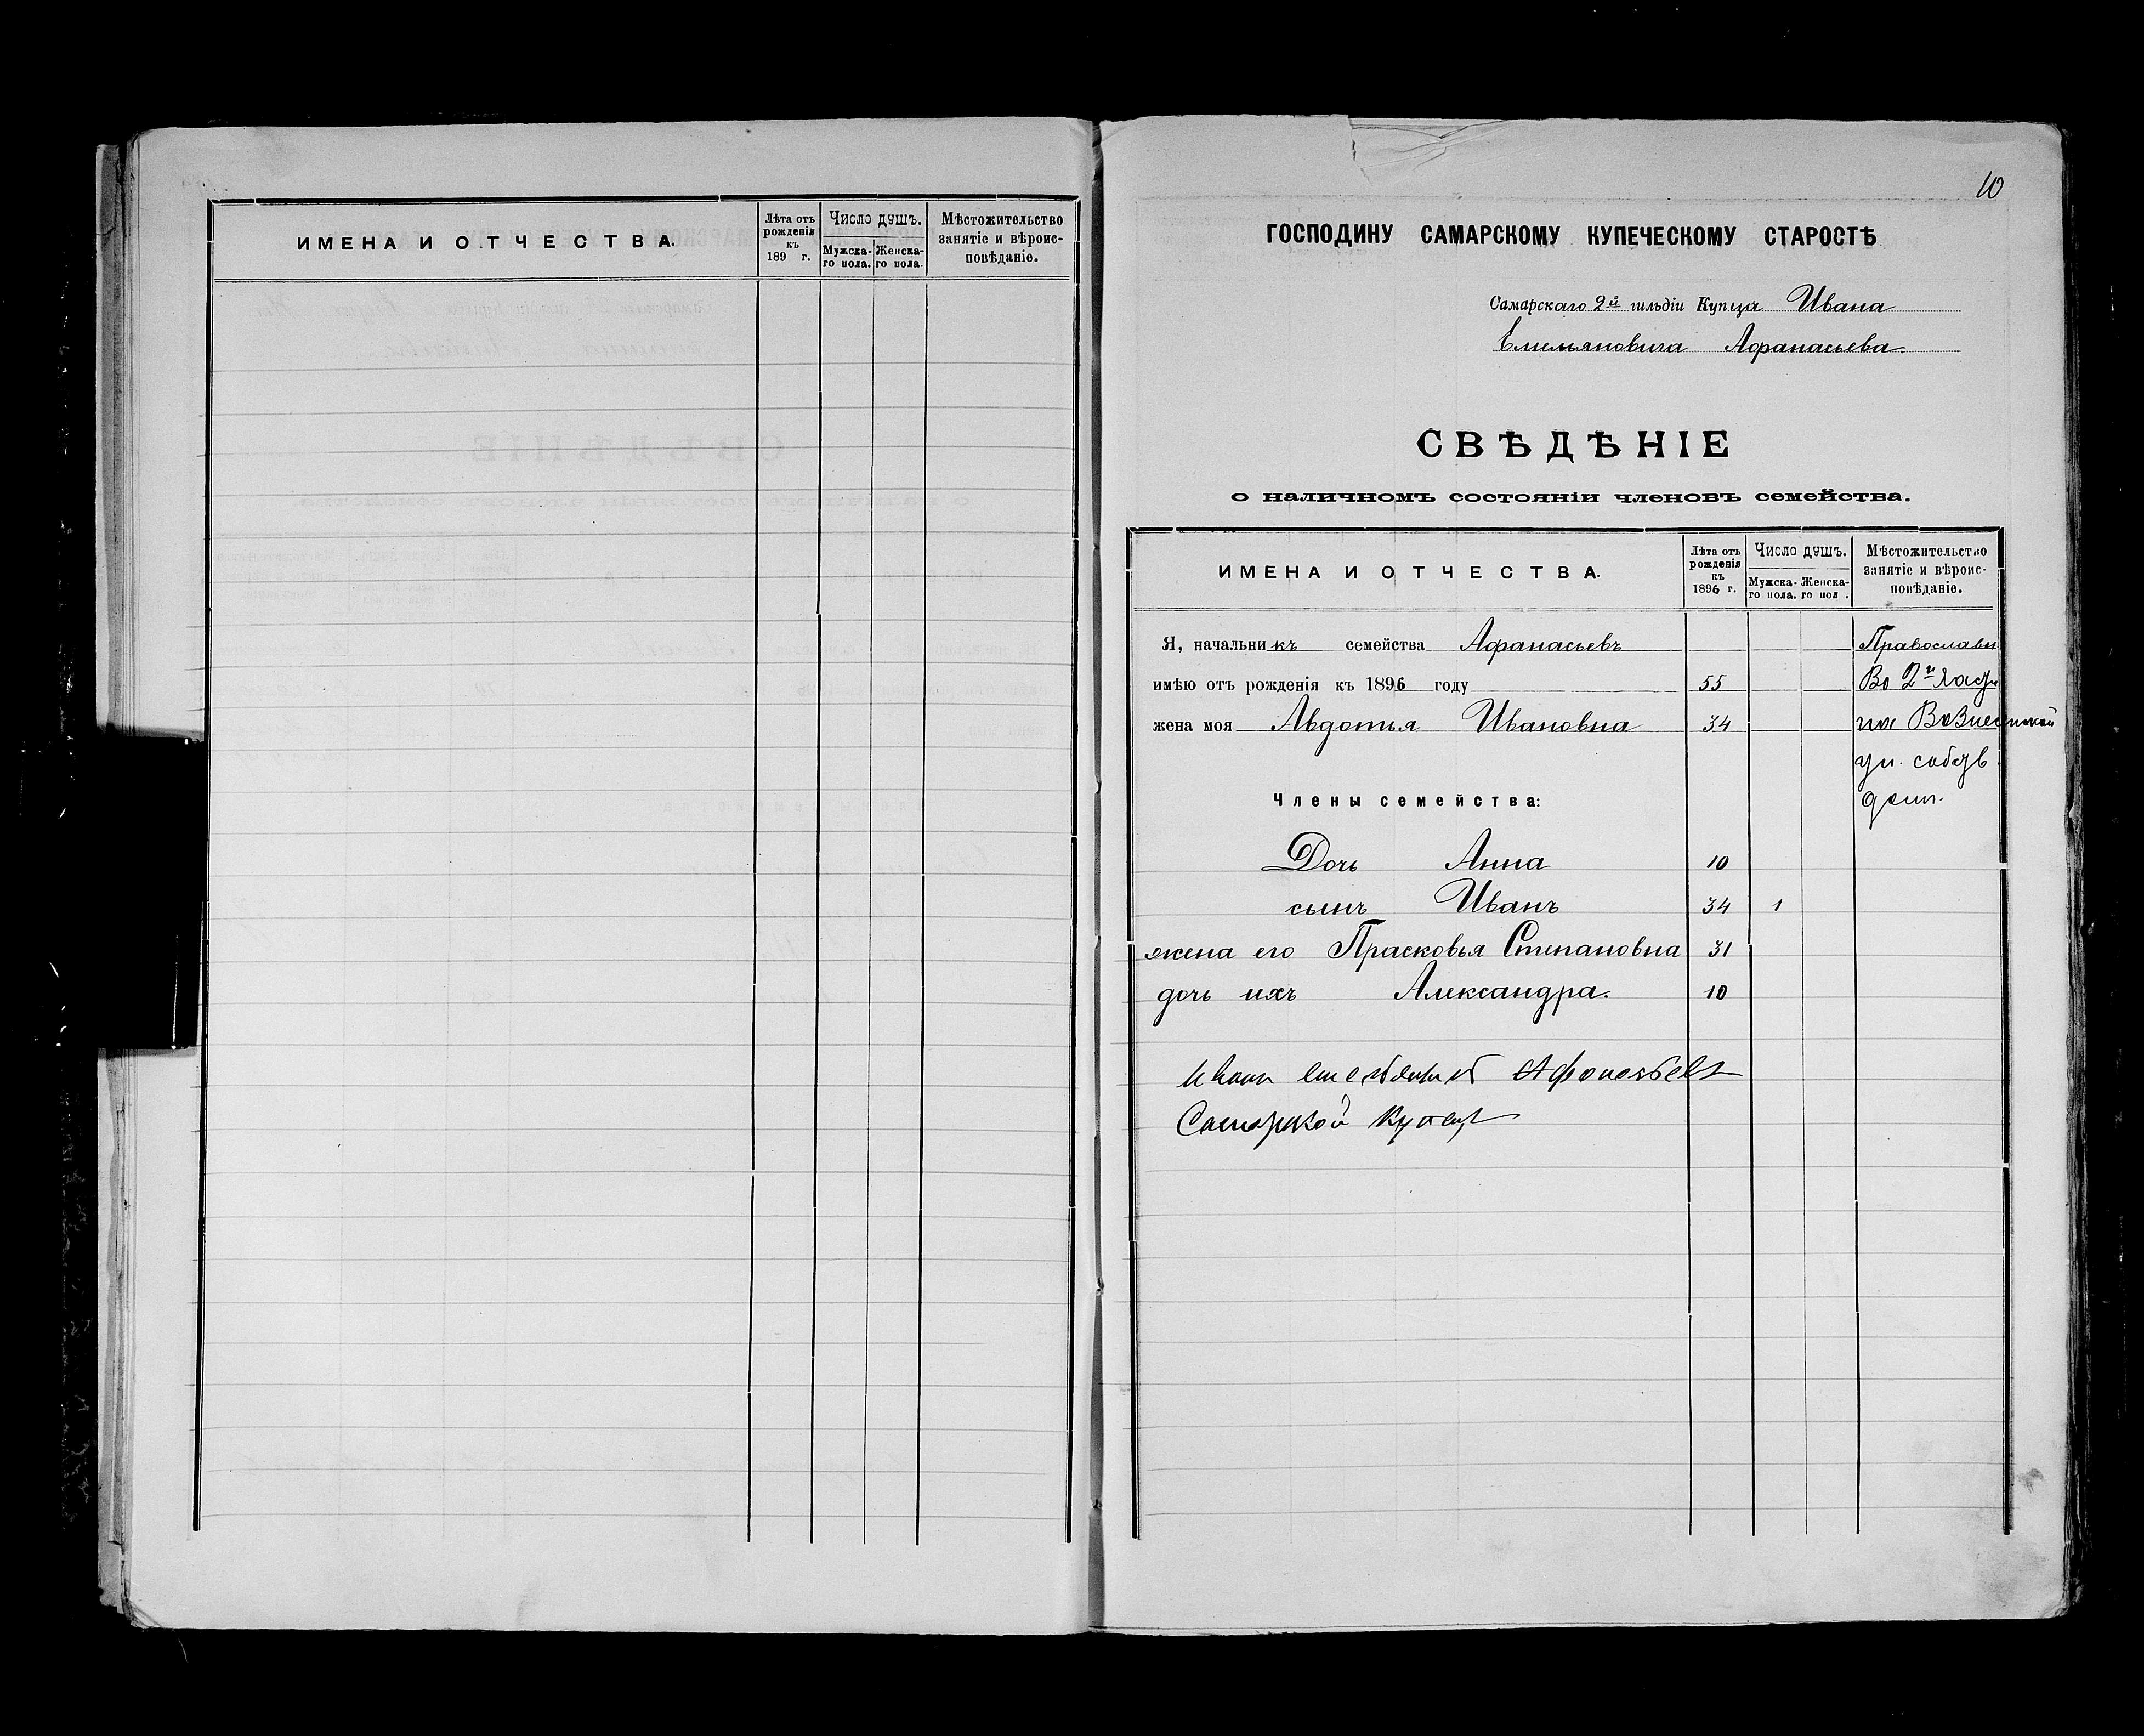 ИМЕНА И ОТЧЕСТВА.
Лѣта отъ рожденія къ 189 г.
Число душъ.
Мужска-го пола.
Женска-го пола.
Мѣстожительство занятіе и вѣроис-повѣданіе.
10
ГОСПОДИНУ САМАРСКОМУ КУПЕЧЕСКОМУ СТАРОСТѢ
Самарскаго 2й гильдіи Купца Ивана
Емельяновича Афанасьева.
СВѢДѢНІЕ
о наличномъ состояніи членовъ семейства.
ИМЕНА И ОТЧЕСТВА.
Лѣта отъ рожденія къ 1896 г.
Число душъ.
Мужска-го пола.
Женска-го пол .
Мѣстожительство занятіе и вѣроис-повѣданіе.
Я, начальникъ семейства Афанасьевъ Православн
имѣю отъ рожденія къ 1896 году 55 Во 2й части
жена моя Авдотья Ивановна 34 на Вознесенской
ул. собств
Члены семейства: дом.
Дочь Анна 10
сынъ Иванъ 34 1
жена его Прасковья Степановна 31
дочь ихъ Александра. 10
Иван Афонасьевъ
Самарской купецъ